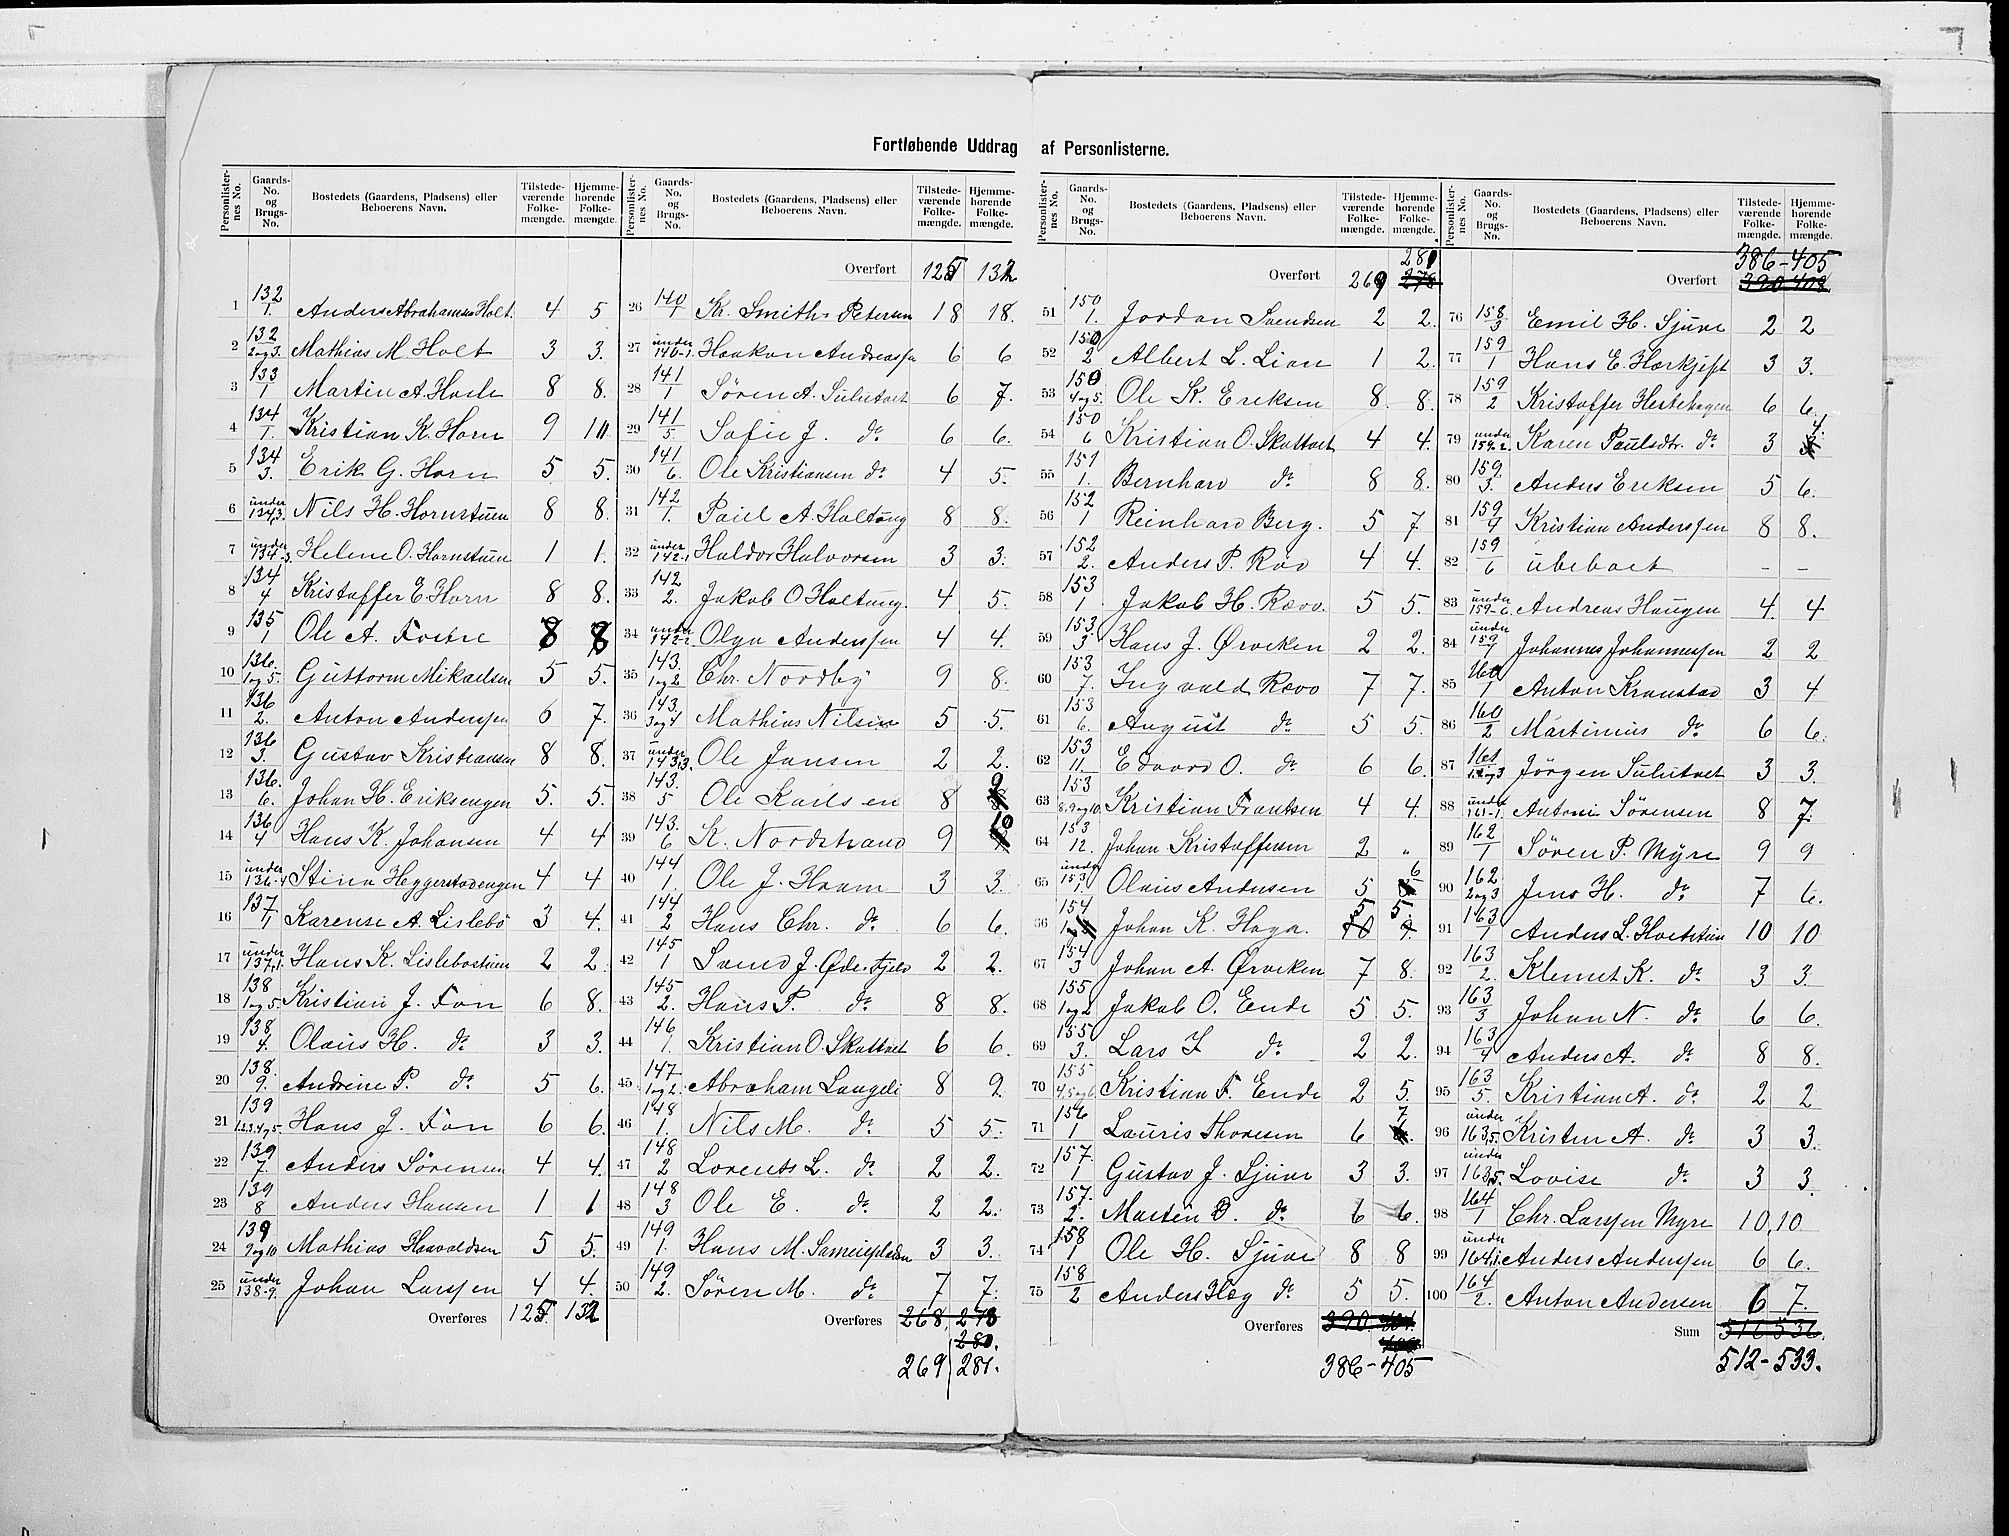 Fortløbende Uddrag af Personlisterne.
Personlisternes No. Gaards-No. og Brugs-No. Bostedets (Gaardens, Pladsens) eller Beboerens Navn. Tilstedeværende Folkemængde. Hjemmehørende Folkemængde.
Overført 125 132
1 132/1. Anders Abrahamsen Holt. 4 5
2 132/2og3. Mathias M. Holt 3 3.
3 133/1 Martin A. Hasle 8 8.
4 134/1. Kristian K. Horn 9 10
5 134/3. Erik G. Horn 5 5.
6 under 134,3. Nils H. Hornstuen 8 8.
7 under 134-3. Helene O. Hornstuen 1 1.
8 134/4 Kristoffer E. Horn 8 8.
9 135/1 Ole A. Fostre 8 8
10 136./1og5. Guttorm Mikaelsen 5 5.
11 136/2. Anton Anderssen 6 7.
12 136/3. Gustav Kristiansen 8 8.
13 136./6. Johan H. Eriksengen 5. 5.
14 136/4 Hans K. Johansen 4 4
15 under 136-4 Stina Heggerstadengen 4 4
16 137/1 Karense A. Lislebö 3 4.
17 under 137,1. Hans K. Lislebostuen 2 2.
18 138/1og5. Kristian J. Fon 6 8.
19 138/4. Olaus H. do 3 3.
20 138./9. Andrine P. do 5 6.
21 139/1.2.3.4og5. Hans J. Fon 6 6.
22 139/7. Anders Sörensen 4 4.
23 139/8 Anders Hansen 1 1
24 139/9og10 Mathias Haavaldsen 5 5.
25 under 138-9. Johan Larssen 4 4.
Overføres 125. 132
26 140/1 Kr. Smith-Petersen 18 18.
27 under 140-1. Haakon Andreassen 6 6
28 141/1 Sören A. Sulutvet 6 7.
29 141/5. Sofie J. do 6 6.
30 141/6. Ole Kristiansen do 4 5.
31 142/1. Paul A. Holtung 8 8.
32 under 142-1 Haldor Halvorsen 3 3.
33 142/2. Jakob O. Holtung. 4 5.
34 under 142-2. Olga Anderssen 4 4.
35 143./1og2 Chr. Nordby 9 8.
36 143./3og4 Mathias Nilsen 5 5.
37 under 143,3. Ole Jansen 2 2.
38 143./5 Ole Karlsen 8 9
39 143./6 K. Nordstrand 9 10
40 144/1. Ole J. Haam 3 3.
41 144/2 Hans Chr. do 6 6.
42 145/1 Svend J. Ødefjeld 2 2.
43 145/2. Hans P. do 8 8.
44 146/1. Kristian O. Skottvet 6 6.
45 147/1og2. Abraham Langeli 8 9.
46 148/1. Nils M. do 5 5.
47 148/2 Lorents L. do 2 2.
48 148/3 Ole E. do 2 2.
49 149/1. Hans M. 3 3.
50 149/2. Sören M. do 7 7.
Overføres 268. 278
280.
269 281.
281
Overført 269 278
51 150/1. Jordan Svendsen 2 2.
52 150/2 Albert L. Lian 1 2.
53 150/4og5. Ole K. Eriksen 8 8.
54 150/6 Kristian O. Skottvet 4 4.
55 151/1. Bernhard do 8 8.
56 152/1 Reinhard Berg. 5 7.
57 152/2. Anders P. Röv 4 4.
58 153/1 Jakob H. Rævo. 5 5.
59 153/3 Hans J. Ørveken 2 2.
60 153/7. Ingvald Rævo 7 7.
61 153/6. August do 5 5.
62 153/11. Edvard O. do 6 6.
63 153/8,9og10. Kristian Frantsen 4 4.
64 153/12. Johan Kristoffersen 2 "
65 under 153/1. Olaus Andersen 5 6
66 154/1 Johan K. Haga. 5 5.
67 154/3 Johan A. Ørveken 7 8.
68 155/1og2 Jakob O. Ende 5 5.
69 155/3. Lars I. do 2 2.
70 155/4,5og6. Kristian F. Ende 2 5.
71 156/1 Lauris Thoresen 6 7
72 157./1 Gustav J. Sjuve 3 3.
73 157./2. Marten O. do 6 6.
74 158/1 Ole H. Sjuve 8 8
75 158/2 Anders Hæg do 5 5.
Overføres 390. 401.
386-405
386-405
Overført 390 403
76 158./3 Emil H. Sjuve 2 2
77 159/1 Hans E. Hærkjift 3 3.
78 159/2 Kristoffer Hestehagen 6 6.
79 under 159-2. Karen Paulsdtr. do 3 4.
80 159./3. Anders Eriksen 5 6.
81 159/4 Kristian Anderssen 8 8.
82 159/6 ubeboet - -
83 under 159-6. Andreas Haugen 4. 4
84 under 159/7 Johannes Johannessen 2 2
85 160/1 Anton Kronstad 3 4
86 160/2 Martinius do 6 6.
87 161/1,2og3 Jörgen Sulutvet 3 3.
88 under 161-1. Antoni Sörensen 8 7.
89 162/1 Sören P. Myre 9 9
90 162/2og3 Jens H. do 7 6.
91 163/1 Anders L. Holtstuen 10 10
92 163/2. Klemet K. do 3 3.
93 163/3 Johan N. do 6 6.
94 163/4 Anders A. do 8 8.
95 163/5. Kristian A. do 2 2
96 under 163,5. Kristen A. do 3 3.
97 under 163,5. Lovise do 3 3.
98 164/1 Chr. Larssen Myre 10, 10
99 under 164,1. Anders Anderssen 6 6.
100 164/2. Anton Andersen 6 7.
Sum 516 536.
512-533.